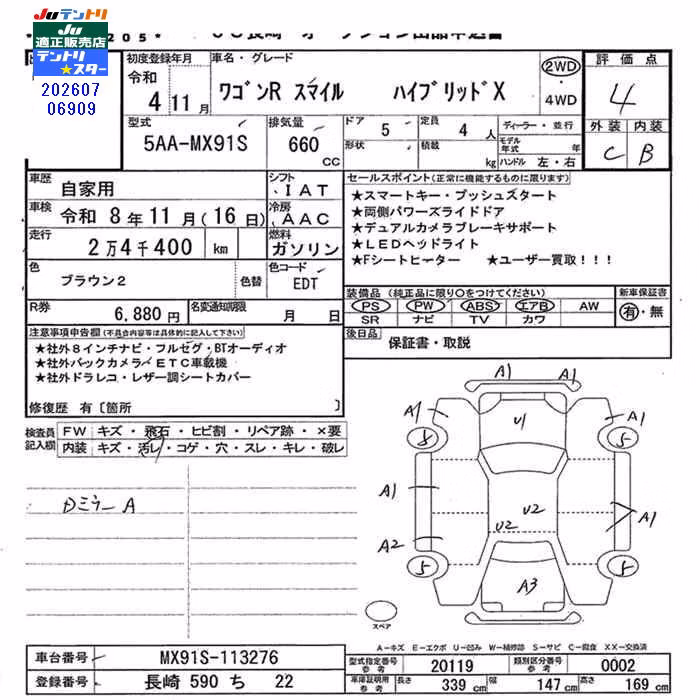 Juテントリ
Ju
適正販売店
テントリ
★スター
202607
06909
205*
初度登録年月
令和
4 11月
車名・グレード
ワゴンR スマイル ハイブリッドX
2WD
・
4WD
評価点
4
外装 内装
C B
型式
5AA-MX91S
排気量
660
CC
ドア 5
形状
定員 4 人
積載 kg
ディーラー・並行
モデル年式 年
ハンドル 左・右
車歴 自家用
シフト
IAT
車検 令和 8年11月(16日)
冷房
AAC
走行 2万4千400 km
燃料
ガソリン
色 ブラウン2 色替
色コード
EDT
R券 6,880円
名変通知期限 月 日
セールスポイント(正常に機能するものに限ります)
★スマートキー・プッシュスタート
★両側パワーズライドドア
★デュアルカメラブレーキサポート
★LEDヘッドライト
★Fシートヒーター ★ユーザー買取!!!
装備品(純正品に限り○をつけてください) 新車保証書
PS PW ABS エアB AW 有・無
SR ナビ TV カワ
後日品 保証書・取説
注意事項申告欄(不具合内容等は具体的に記入して下さい)
★社外8インチナビ・フルセグ・BTオーディオ
★社外バックカメラ・ETC車載機
★社外ドラレコ・レザー調シートカバー
修復歴 有〔箇所 〕
検査員記入欄
FW キズ・飛石・ヒビ割・リペア跡・×要
内装 キズ・汚レ・コゲ・穴・スレ・キレ・破レ
Dミラー A
A1 A1
A1 U1 A1
8 5
A1 U2 A1
A2 U2
5 5
A3
スペア
A-キズ E-エクボ U-凹み W-補修跡 S-サビ C-腐食 XX-交換済
車台番号 MX91S-113276
登録番号 長崎 590 ち 22
型式指定番号 参考 20119 類別区分番号 参考 0002
車庫証明用 参考 長さ 339 cm 幅 147 cm 高さ 169 cm